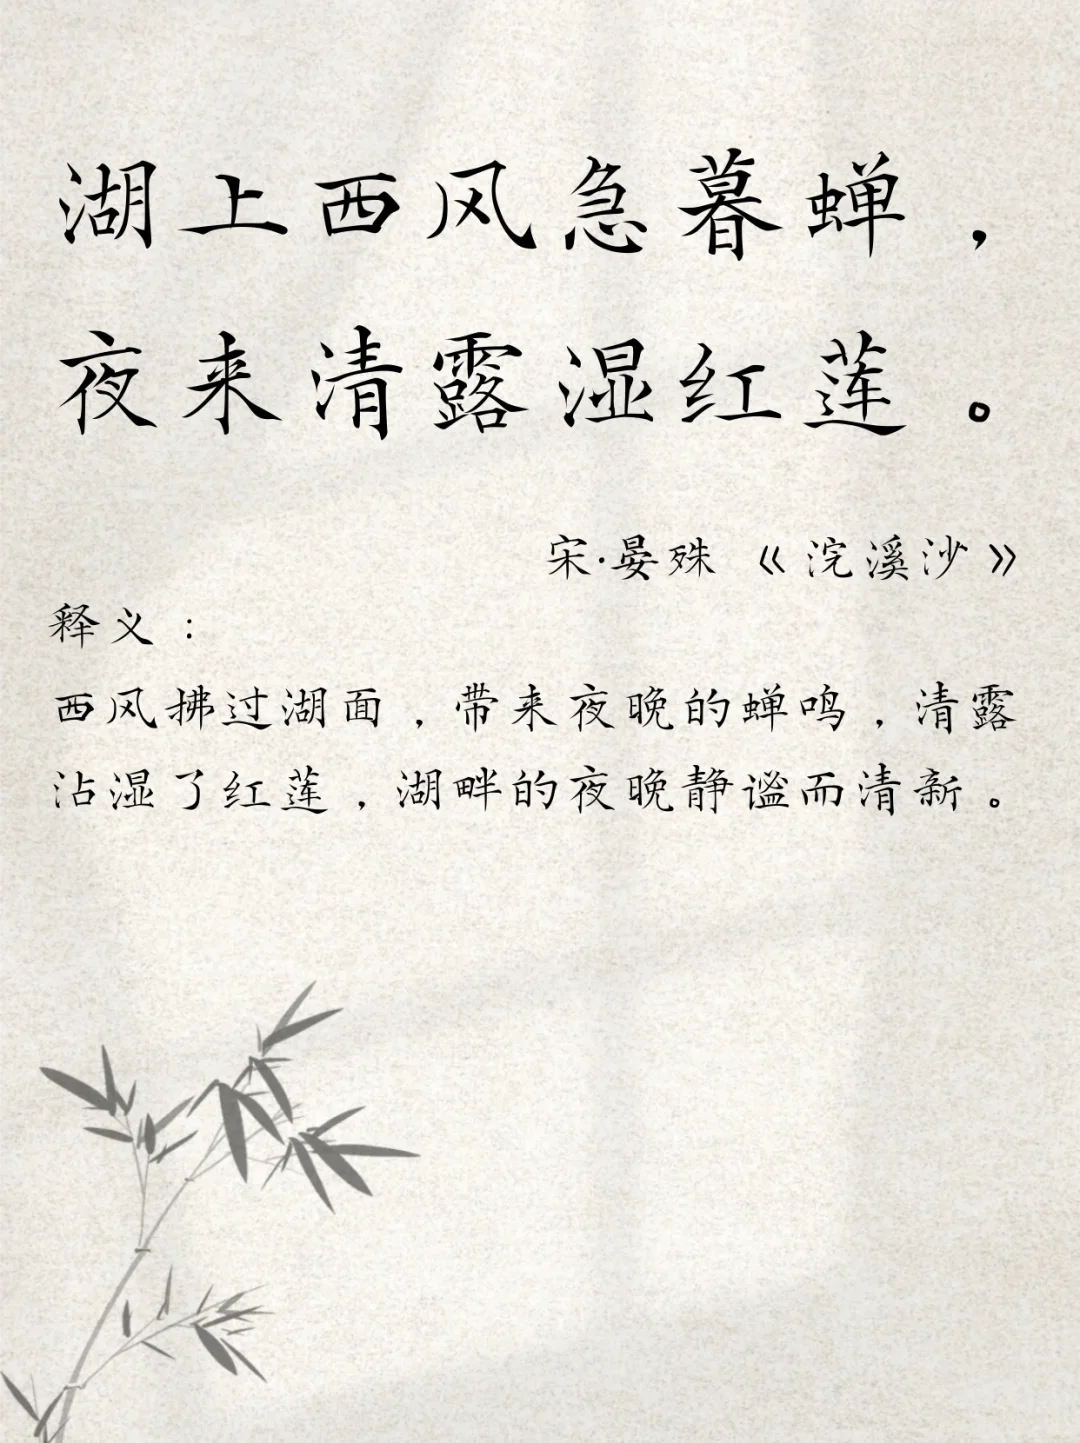 湖上西风急暮蝉，
夜来清露湿红莲。
宋·晏殊《浣溪沙》
释义：
西风拂过湖面，带来夜晚的蝉鸣，清露
沾湿了红莲，湖畔的夜晚静谧而清新。